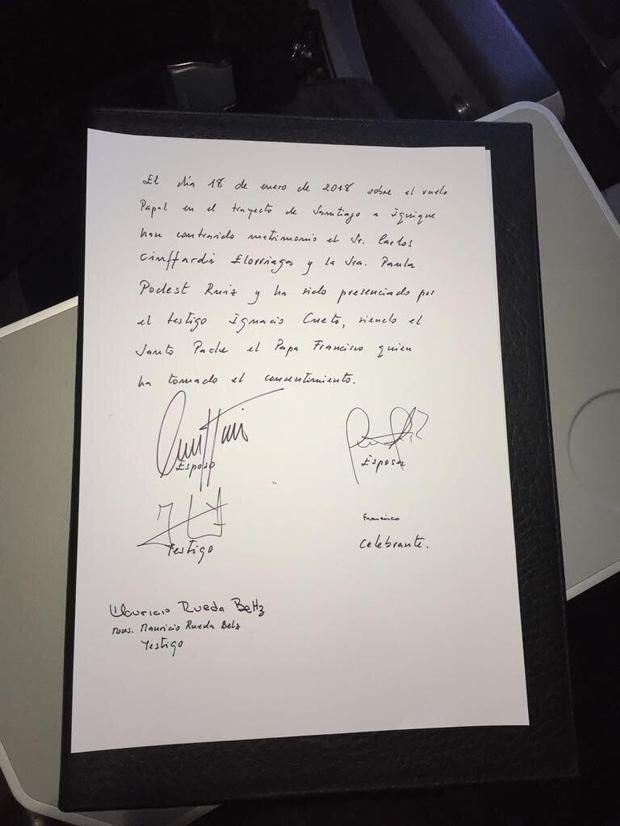 El día 18 de enero de 2018 sobre el vuelo
Papal en el trayecto de Santiago a Iquique
han contraido matrimonio el Sr. Carlos
Ciuffardi Elorriaga y la Sra. Paula
Podest Ruiz y ha sido presenciado por
el testigo Ignacio Cueto, siendo el
Santo Padre el Papa Francisco quien
ha tomado el consentimiento.
Esposo
Esposa
Testigo
Francisco
Celebrante.
Mauricio Rueda Beltz
Mons. Mauricio Rueda Beltz
Testigo